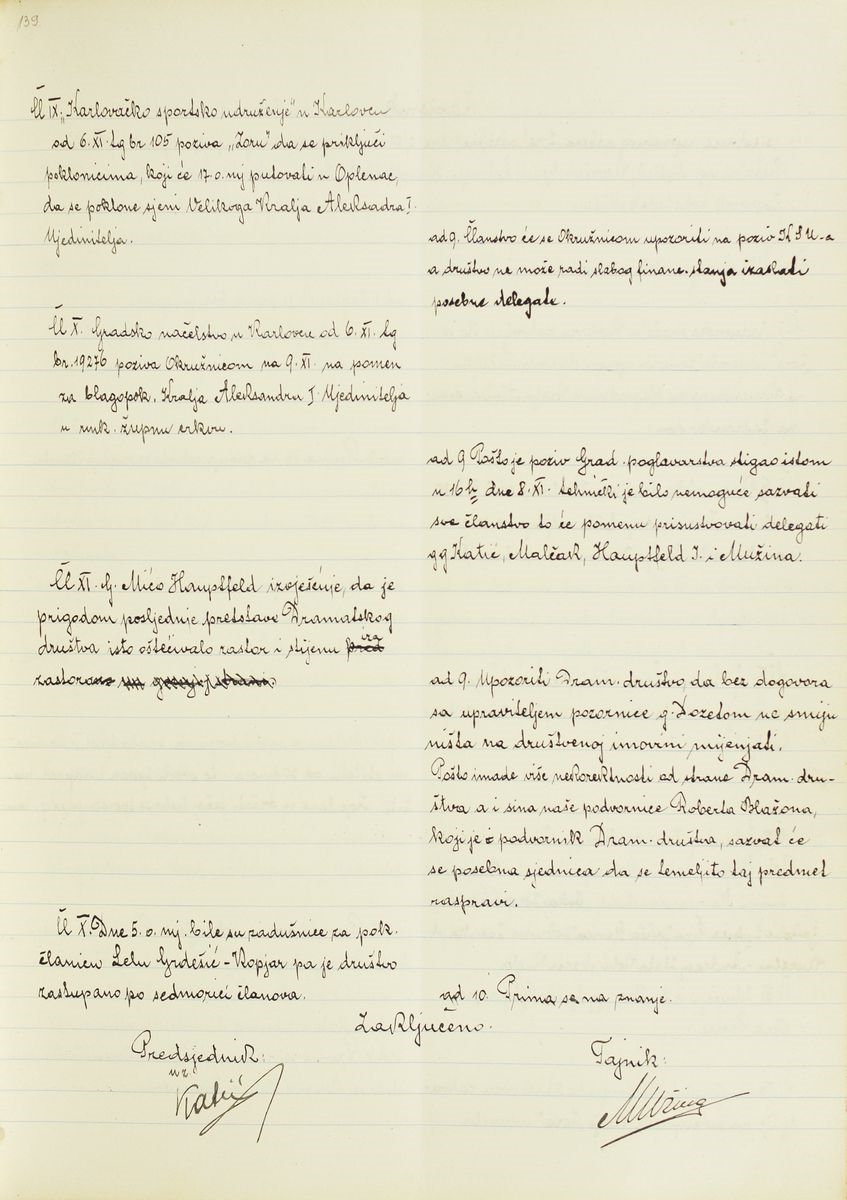 139.
Čl IX. „Karlovačko sportsko udruženje" u Karlovcu
od 6. XI. tg br 105 poziva „Zoru" da se priključi
poklonicima, koji će 17 o. mj putovati u Oplenac,
da se poklone sjeni Velikoga Kralja Aleksadra I.
Ujedinitelja.
ad 9. Članstvo će se Okružnicom upozoriti na poziv K S U-a
a društvo ne može radi slabog financ. stanja izaslati
posebne delegate.
Čl X. Gradsko načelstvo u Karlovcu od 6. XI. tg
br. 19276 poziva Okružnicom na 9. XI. na pomen
za blagopok. Kralja Aleksandru I Ujedinitelja
u rimk. župnu crkvu.
ad 9 Pošto je poziv Grad. poglavarstva stigao istom
u 16 h dne 8. XI. tehnički je bilo nemoguće sazvati
sve članstvo to će pomenu prisustvovati delegati
g g Katić, Malčak, Hauptfeld I. i Mužina.
Čl XI. G. Mićo Hauptfeld izvješćuje, da je
prigodom posljednje pretstave Dramatskog
društva isto oštećivalo zastor i stijenu pred iza
zastora
ad 9. Upozoriti Dram. društvo, da bez dogovora
sa upraviteljem pozornice g. Dozetom ne smiju
ništa na društvenoj imovini mijenjati.
Pošto imade više nekorektnosti od strane Dram. dru-
štva a i sina naše podvornice Roberta Blažona,
koji je podvornik Dram. društva, sazvat će
se posebna sjednica da se temeljito taj predmet
raspravi.
Čl X. Dne 5. o. mj. bile su zadušnice za pok.
članicu Lelu Grdešić-Kopjar pa je društvo
zastupano po sedmorici članova.
ad 10. Prima se na znanje.
Zaključeno.
Predsjednik:
Katić
Tajnik:
MMužina